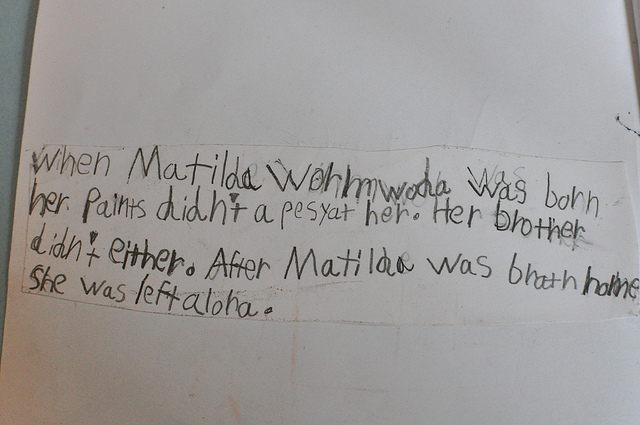 When Matilda Wormwoda was born
her Paints didn't a pesyat her. Her brother
didn't either. After Matilda was brath home
she was left aloha.